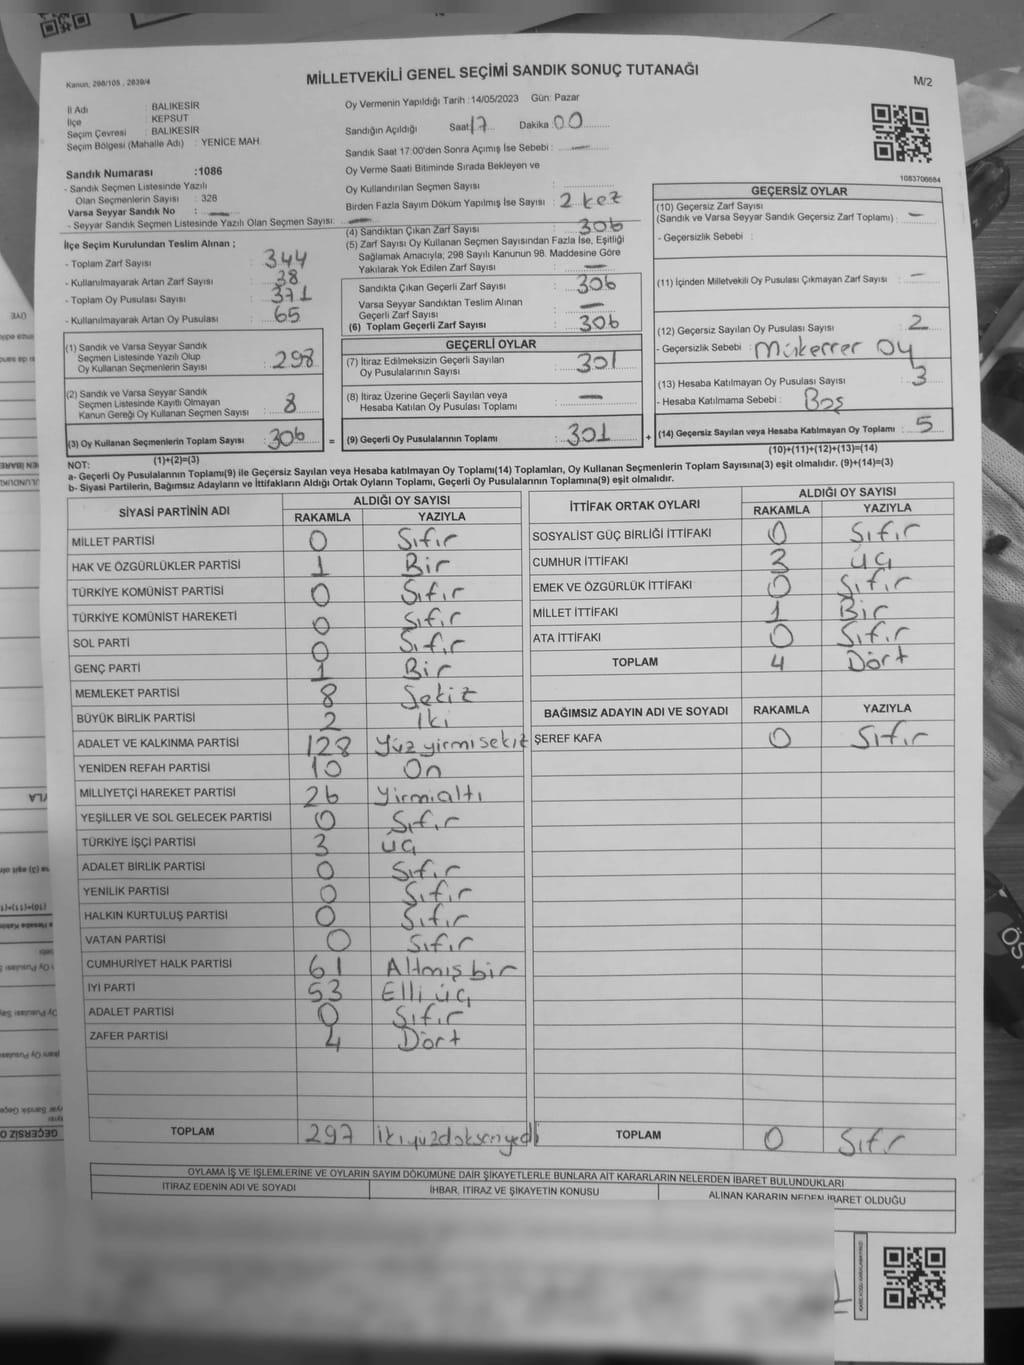 Kanun: 298/105 , 2839/4
MİLLETVEKİLİ GENEL SEÇİMİ SANDIK SONUÇ TUTANAĞI
M/2
İl Adı : BALIKESİR
İlçe : KEPSUT
Seçim Çevresi : BALIKESİR
Seçim Bölgesi (Mahalle Adı) : YENİCE MAH.
Oy Vermenin Yapıldığı Tarih :14/05/2023 Gün: Pazar
Sandığın Açıldığı Saat 17 Dakika 00
Sandık Saat 17:00'den Sonra Açımış İse Sebebi : —
Oy Verme Saati Bitiminde Sırada Bekleyen ve
Oy Kullandırılan Seçmen Sayısı :
Birden Fazla Sayım Döküm Yapılmış İse Sayısı : 2 kez
1083706684
Sandık Numarası :1086
- Sandık Seçmen Listesinde Yazılı
Olan Seçmenlerin Sayısı : 328
Varsa Seyyar Sandık No : —
- Seyyar Sandık Seçmen Listesinde Yazılı Olan Seçmen Sayısı: —
İlçe Seçim Kurulundan Teslim Alınan ;
- Toplam Zarf Sayısı : 344
- Kullanılmayarak Artan Zarf Sayısı : 38
- Toplam Oy Pusulası Sayısı : 371
- Kullanılmayarak Artan Oy Pusulası : 65
(1) Sandık ve Varsa Seyyar Sandık
Seçmen Listesinde Yazılı Olup
Oy Kullanan Seçmenlerin Sayısı : 298
(2) Sandık ve Varsa Seyyar Sandık
Seçmen Listesinde Kayıtlı Olmayan
Kanun Gereği Oy Kullanan Seçmen Sayısı : 8
(3) Oy Kullanan Seçmenlerin Toplam Sayısı : 306 =
(1)+(2)=(3)
(4) Sandıktan Çıkan Zarf Sayısı : 306
(5) Zarf Sayısı Oy Kullanan Seçmen Sayısından Fazla İse, Eşitliği
Sağlamak Amacıyla; 298 Sayılı Kanunun 98. Maddesine Göre
Yakılarak Yok Edilen Zarf Sayısı : —
Sandıkta Çıkan Geçerli Zarf Sayısı : 306
Varsa Seyyar Sandıktan Teslim Alınan
Geçerli Zarf Sayısı : —
(6) Toplam Geçerli Zarf Sayısı : 306
GEÇERLİ OYLAR
(7) İtiraz Edilmeksizin Geçerli Sayılan
Oy Pusulalarının Sayısı : 301
(8) İtiraz Üzerine Geçerli Sayılan veya
Hesaba Katılan Oy Pusulası Toplamı : —
(9) Geçerli Oy Pusulalarının Toplamı : 301 +
GEÇERSİZ OYLAR
(10) Geçersiz Zarf Sayısı
(Sandık ve Varsa Seyyar Sandık Geçersiz Zarf Toplamı) : —
- Geçersizlik Sebebi :
(11) İçinden Milletvekili Oy Pusulası Çıkmayan Zarf Sayısı : —
(12) Geçersiz Sayılan Oy Pusulası Sayısı : 2
- Geçersizlik Sebebi : Mükerrer oy
(13) Hesaba Katılmayan Oy Pusulası Sayısı : 3
- Hesaba Katılmama Sebebi : Boş
(14) Geçersiz Sayılan veya Hesaba Katılmayan Oy Toplamı : 5
(10)+(11)+(12)+(13)=(14)
NOT:
a- Geçerli Oy Pusulalarının Toplamı(9) ile Geçersiz Sayılan veya Hesaba katılmayan Oy Toplamı(14) Toplamları, Oy Kullanan Seçmenlerin Toplam Sayısına(3) eşit olmalıdır. (9)+(14)=(3)
b- Siyasi Partilerin, Bağımsız Adayların ve İttifakların Aldığı Ortak Oyların Toplamı, Geçerli Oy Pusulalarının Toplamına(9) eşit olmalıdır.
SİYASİ PARTİNİN ADI ALDIĞI OY SAYISI
RAKAMLA YAZIYLA
MİLLET PARTİSİ 0 Sıfır
HAK VE ÖZGÜRLÜKLER PARTİSİ 1 Bir
TÜRKİYE KOMÜNİST PARTİSİ 0 Sıfır
TÜRKİYE KOMÜNİST HAREKETİ 0 Sıfır
SOL PARTİ 0 Sıfır
GENÇ PARTİ 1 Bir
MEMLEKET PARTİSİ 8 Sekiz
BÜYÜK BİRLİK PARTİSİ 2 İki
ADALET VE KALKINMA PARTİSİ 128 Yüz yirmi sekiz
YENİDEN REFAH PARTİSİ 10 On
MİLLİYETÇİ HAREKET PARTİSİ 26 Yirmialtı
YEŞİLLER VE SOL GELECEK PARTİSİ 0 Sıfır
TÜRKİYE İŞÇİ PARTİSİ 3 üç
ADALET BİRLİK PARTİSİ 0 Sıfır
YENİLİK PARTİSİ 0 Sıfır
HALKIN KURTULUŞ PARTİSİ 0 Sıfır
VATAN PARTİSİ 0 Sıfır
CUMHURİYET HALK PARTİSİ 61 Altmış bir
İYİ PARTİ 53 Elli üç
ADALET PARTİSİ 0 Sıfır
ZAFER PARTİSİ 4 Dört
TOPLAM 297 ikiyüzdoksanyedi
İTTİFAK ORTAK OYLARI ALDIĞI OY SAYISI
RAKAMLA YAZIYLA
SOSYALİST GÜÇ BİRLİĞİ İTTİFAKI 0 Sıfır
CUMHUR İTTİFAKI 3 üç
EMEK VE ÖZGÜRLÜK İTTİFAKI 0 Sıfır
MİLLET İTTİFAKI 1 Bir
ATA İTTİFAKI 0 Sıfır
TOPLAM 4 Dört
BAĞIMSIZ ADAYIN ADI VE SOYADI RAKAMLA YAZIYLA
ŞEREF KAFA 0 Sıfır
TOPLAM 0 Sıfır
OYLAMA İŞ VE İŞLEMLERİNE VE OYLARIN SAYIM DÖKÜMÜNE DAİR ŞİKAYETLERLE BUNLARA AİT KARARLARIN NELERDEN İBARET BULUNDUKLARI
İTİRAZ EDENİN ADI VE SOYADI İHBAR, İTİRAZ VE ŞİKAYETİN KONUSU ALINAN KARARIN NEDEN İBARET OLDUĞU